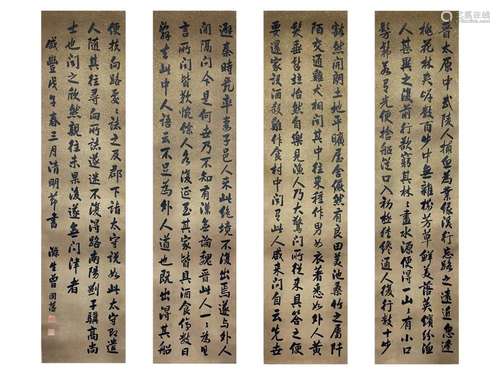 晉太原中武陵人捕魚為業緣溪行忘路之遠近忽逢
桃花林夾岸數百步中無雜樹芳草鮮美落英繽紛漁
人甚異之復前行欲窮其林〻盡水源便得山〻有小口
髣髴若有光便捨船從口入初極狹纔通人復行數十步
豁然開朗土地平曠屋舍儼然有良田美池桑竹之屬阡
陌交通雞犬相聞其中往來種作男女衣著悉如外人黃
髮垂髫並怡然自樂見漁人乃大驚問所從來具答之便
要還家設酒殺雞作食村中聞有此人咸來問自云先世
避秦時亂率妻子邑人來此絕境不復出焉遂與外人
間隔問今是何世乃不知有漢無論魏晉此人一〻為具
言所聞皆歎惋餘人各復延至其家皆具酒食停數日
辭去此中人語云不足為外人道也既出得其船
便扶向路處〻誌之及郡下詣太守說如此太守即遣
人隨其往尋向所誌遂迷不復得路南陽劉子驥高尚
士也聞之欣然親往未果後遂無問津者
咸豐戊午春三月清明節書 滌生曾國藩